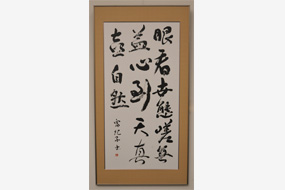 眼看世態嗟無
益心到天真
喜自然